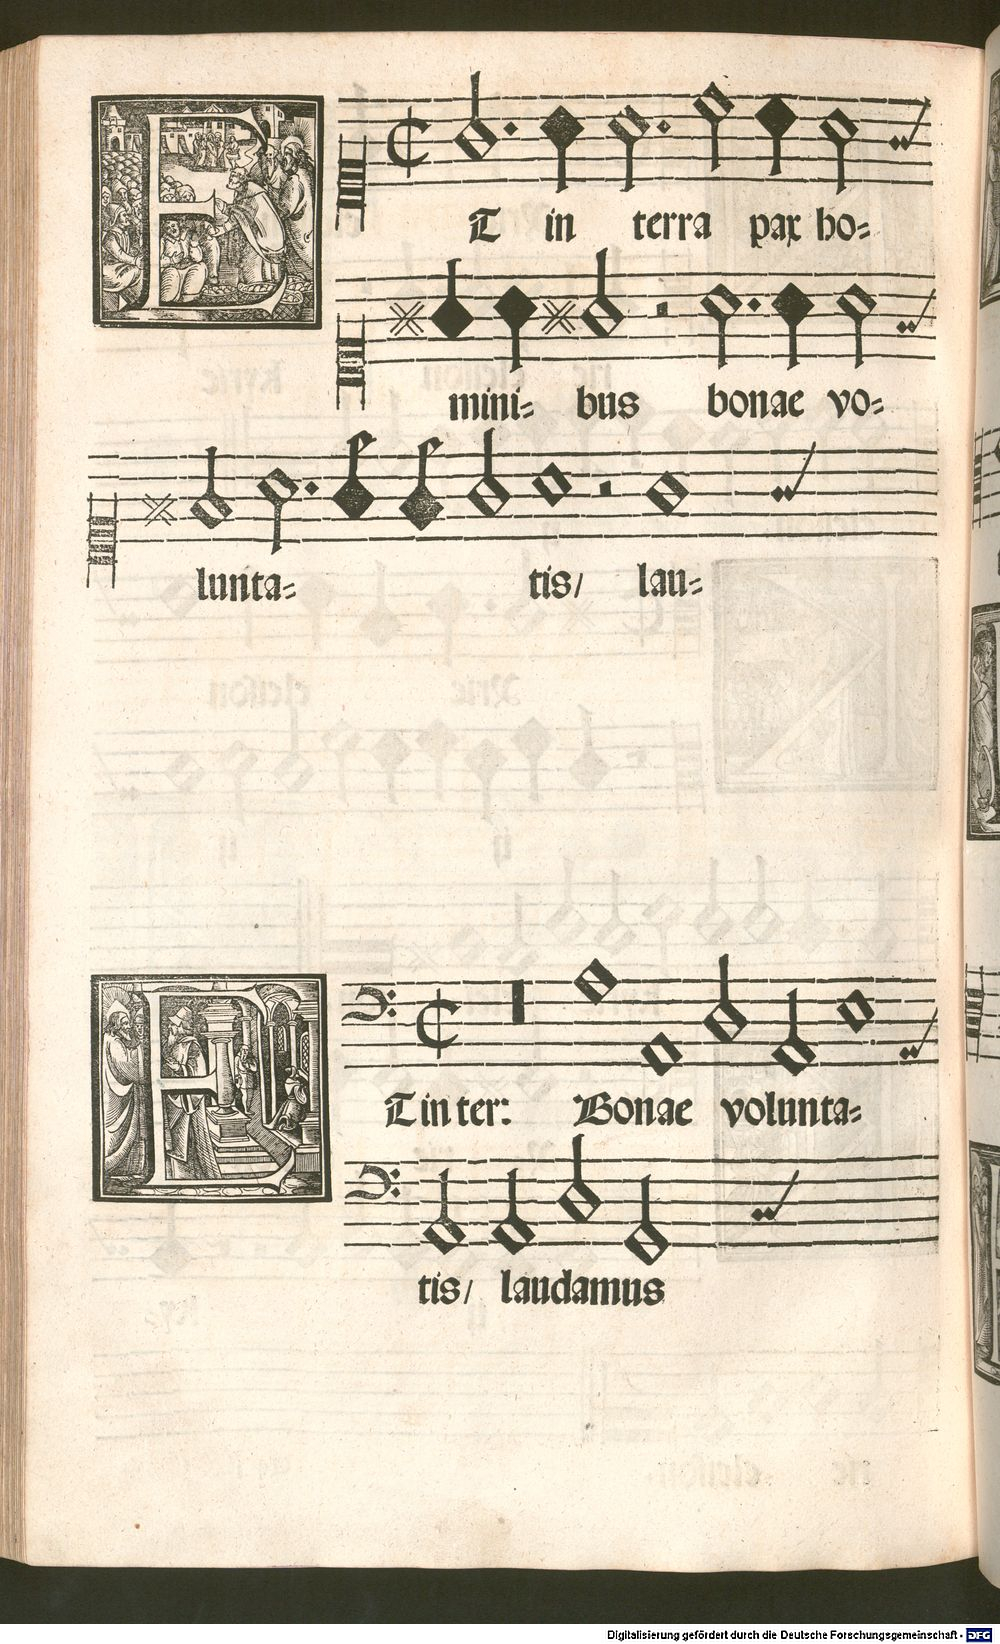 ET in terra pax ho-
mini- bus bonae vo-
lunta- tis/ lau-
ET in ter: Bonae volunta-
tis/ laudamus
Digitalisierung gefördert durch die Deutsche Forschungsgemeinschaft - DFG